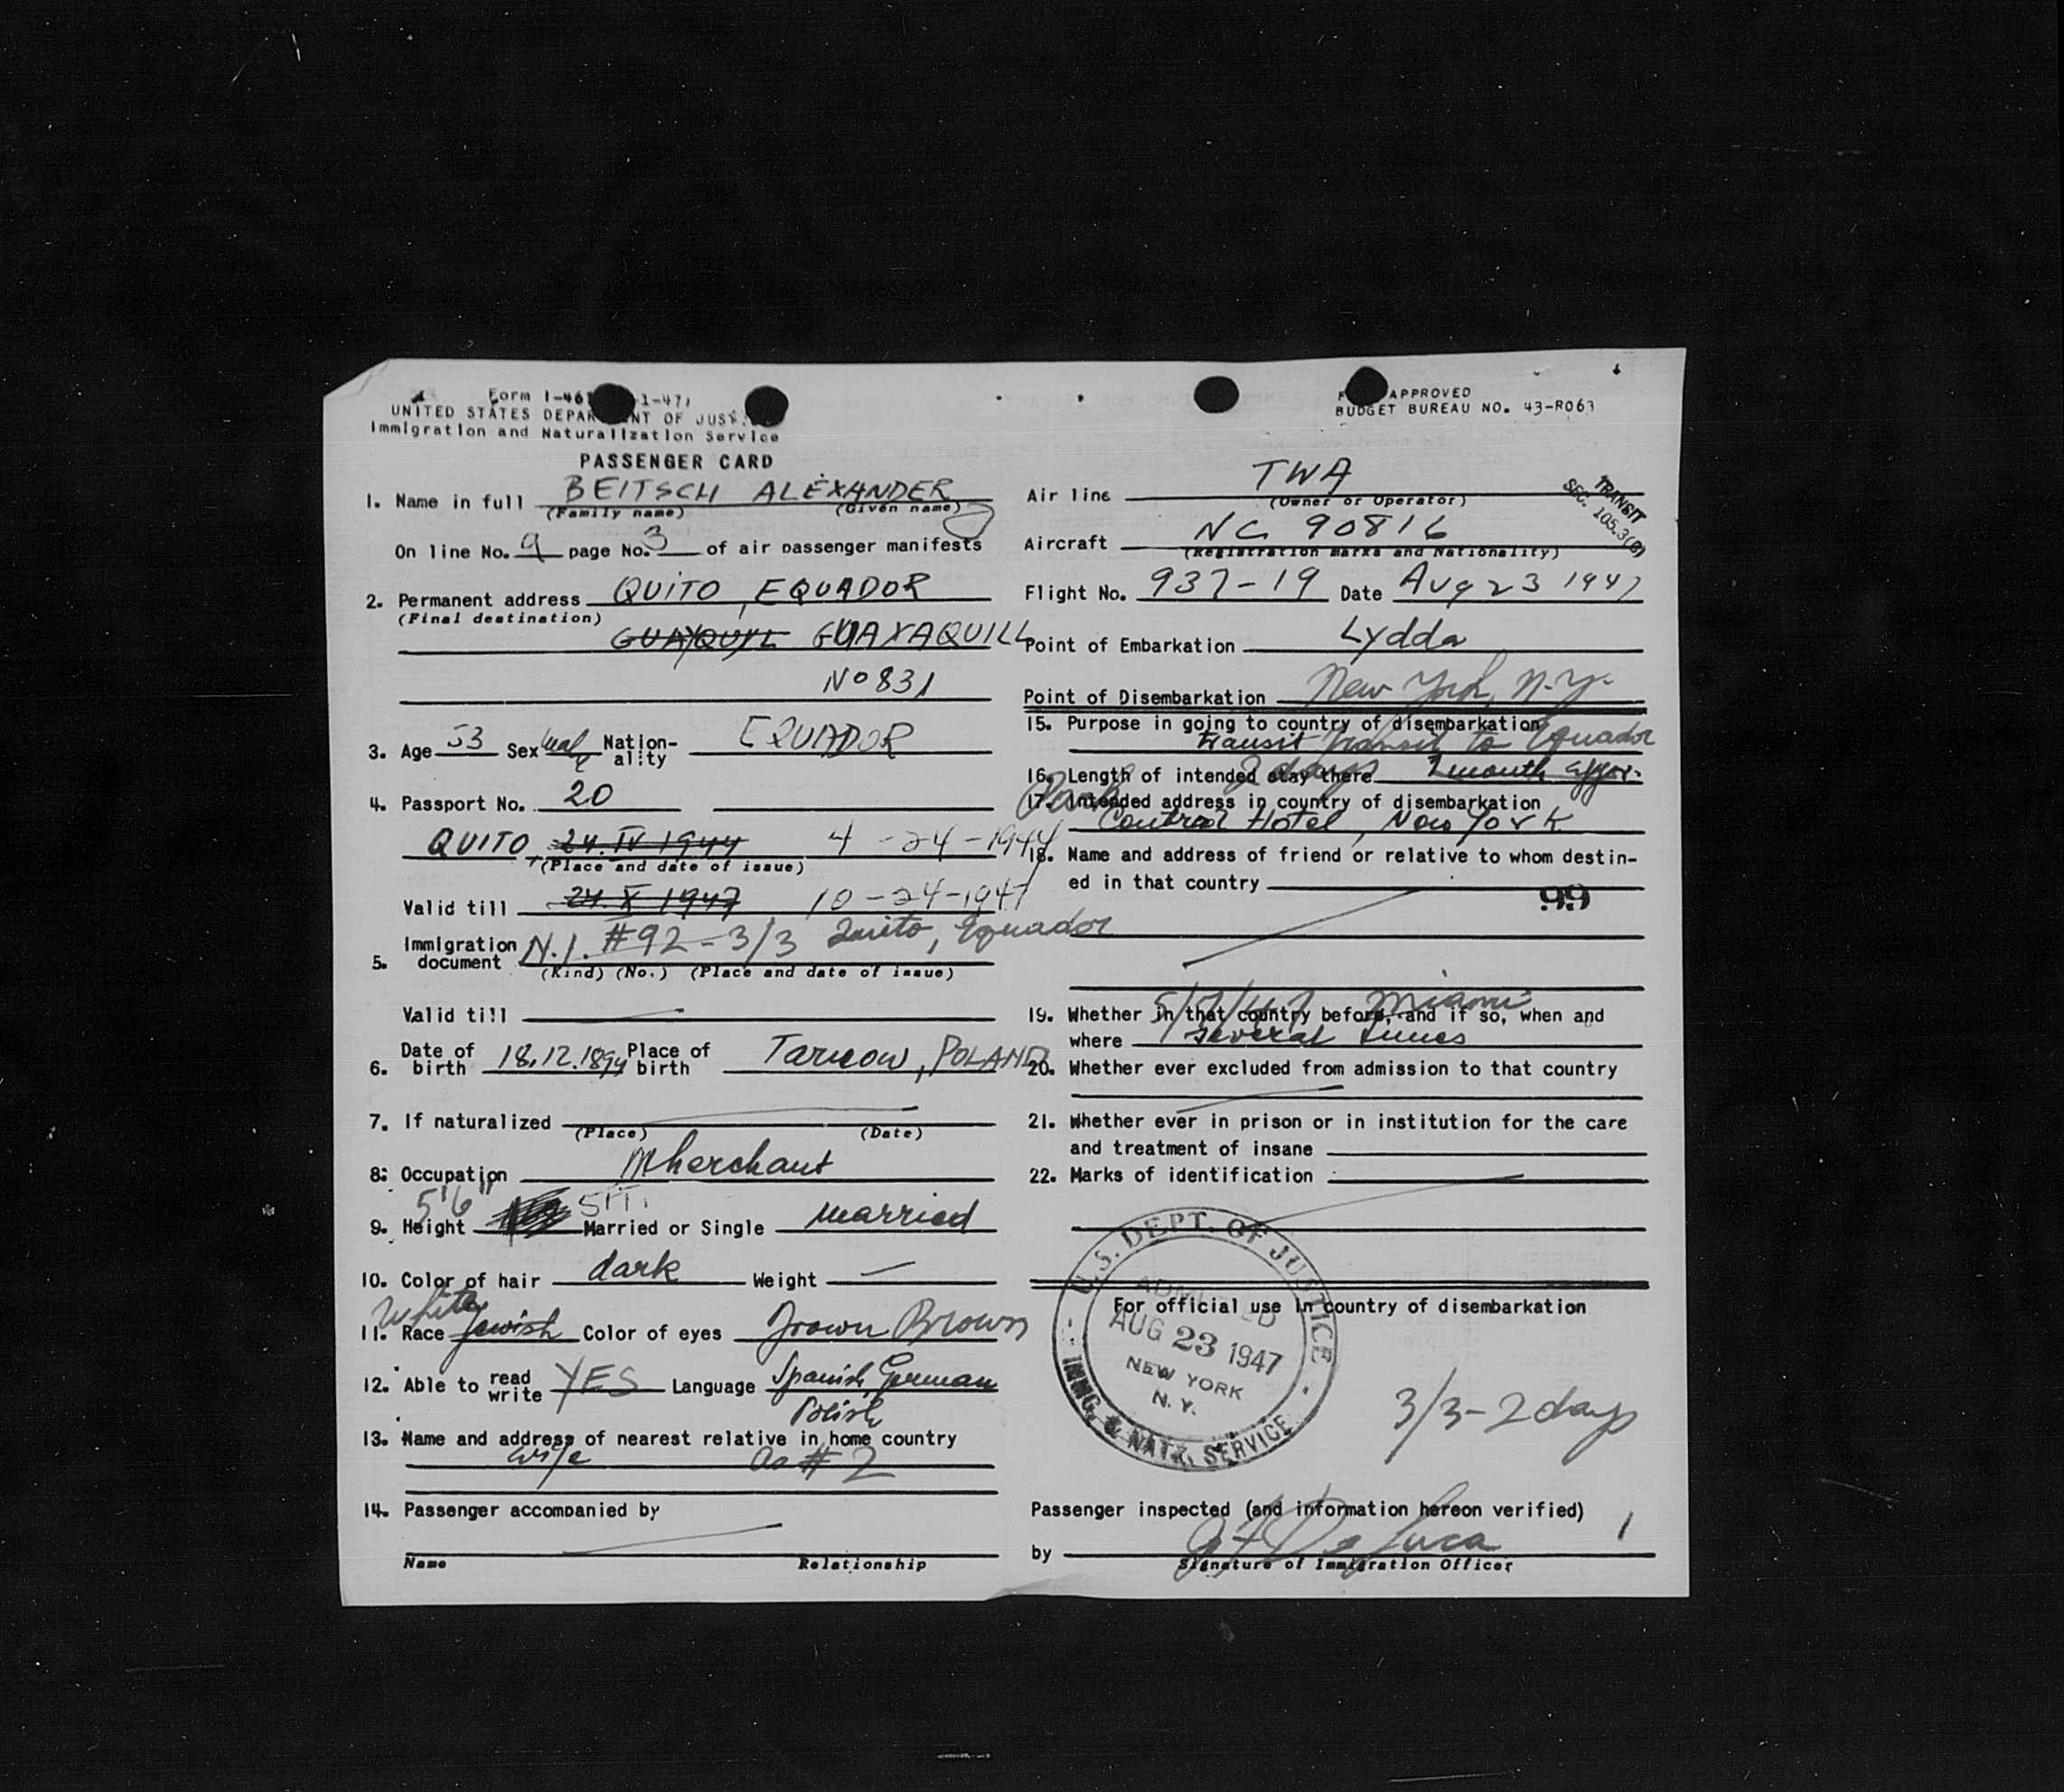 Form I-46 1-47)
UNITED STATES DEPARTMENT OF JUSTICE
Immigration and Naturalization Service
FORM APPROVED
BUDGET BUREAU NO. 43-R063
PASSENGER CARD
1. Name in full BEITSCH ALEXANDER
(Family name) (Given name)
On line No. 9 page No. 3 of air passenger manifests
2. Permanent address QUITO, EQUADOR
(Final destination)
GUAYQUYL GUAYAQUILL
No 831
3. Age 53 Sex Male Nation-ality EQUADOR
4. Passport No. 20
QUITO, 24.IV 1944 4-24-1944
(Place and date of issue)
Valid till 24.X 1947 10-24-1947
5. Immigration document N.I. #92-3/3 Quito, Equador
(Kind) (No.) (Place and date of issue)
Valid till
6. Date of birth 18.12.1894 Place of birth Tarnow, POLAND
7. If naturalized
(Place) (Date)
8. Occupation Mherchant
9. Height 5'6" Married or Single married
10. Color of hair dark Weight —
11. Race White Jewish Color of eyes Brown Brown
12. Able to read write YES Language Spanish, German
Polish
13. Name and address of nearest relative in home country
wife as #2
14. Passenger accompanied by
Name Relationship
Air line TWA
(Owner or Operator)
TRANSIT
SEC. 105.3(B)
Aircraft NC 90816
(Registration marks and Nationality)
Flight No. 937-19 Date Aug 23 1947
Point of Embarkation Lydda
Point of Disembarkation New York, N.Y.
15. Purpose in going to country of disembarkation
transit Transit to Equador
16. Length of intended stay there 2 days 1 month
17. Intended address in country of disembarkation
Park Central Hotel, New York
18. Name and address of friend or relative to whom destin-
ed in that country
99
19. Whether in that country before, and if so, when and
Miami
where several times
20. Whether ever excluded from admission to that country
21. Whether ever in prison or in institution for the care
and treatment of insane
22. Marks of identification
For official use in country of disembarkation
U.S. DEPT. OF JUSTICE
ADMITTED
AUG 23 1947
NEW YORK
N.Y.
IMMG. & NATZ. SERVICE
3/3-2 days
Passenger inspected (and information hereon verified)
by De Luca
Signature of Immigration Officer